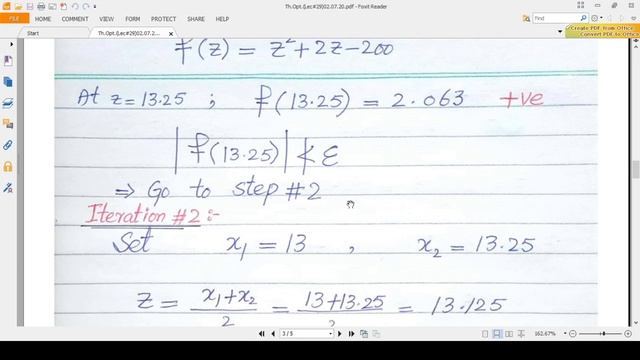 Th.Opt.(Lec#29)02.07.20.pdf - Foxit Reader
FILE HOME COMMENT VIEW FORM PROTECT SHARE HELP Find
Create PDF from Office
Convert PDF to Office
Start Th.Opt.(Lec#29)02.07.2...
f(z) = z²+2z-200
At z=13.25 ; f(13.25) = 2.063 +ve
|f(13.25)| ≮ ε
⇒ Go to step #2
Iteration #2:-
Set x₁ = 13 , x₂ = 13.25
z = (x₁+x₂)/2 = (13+13.25)/2 = 13.125
3 / 5 162.67%